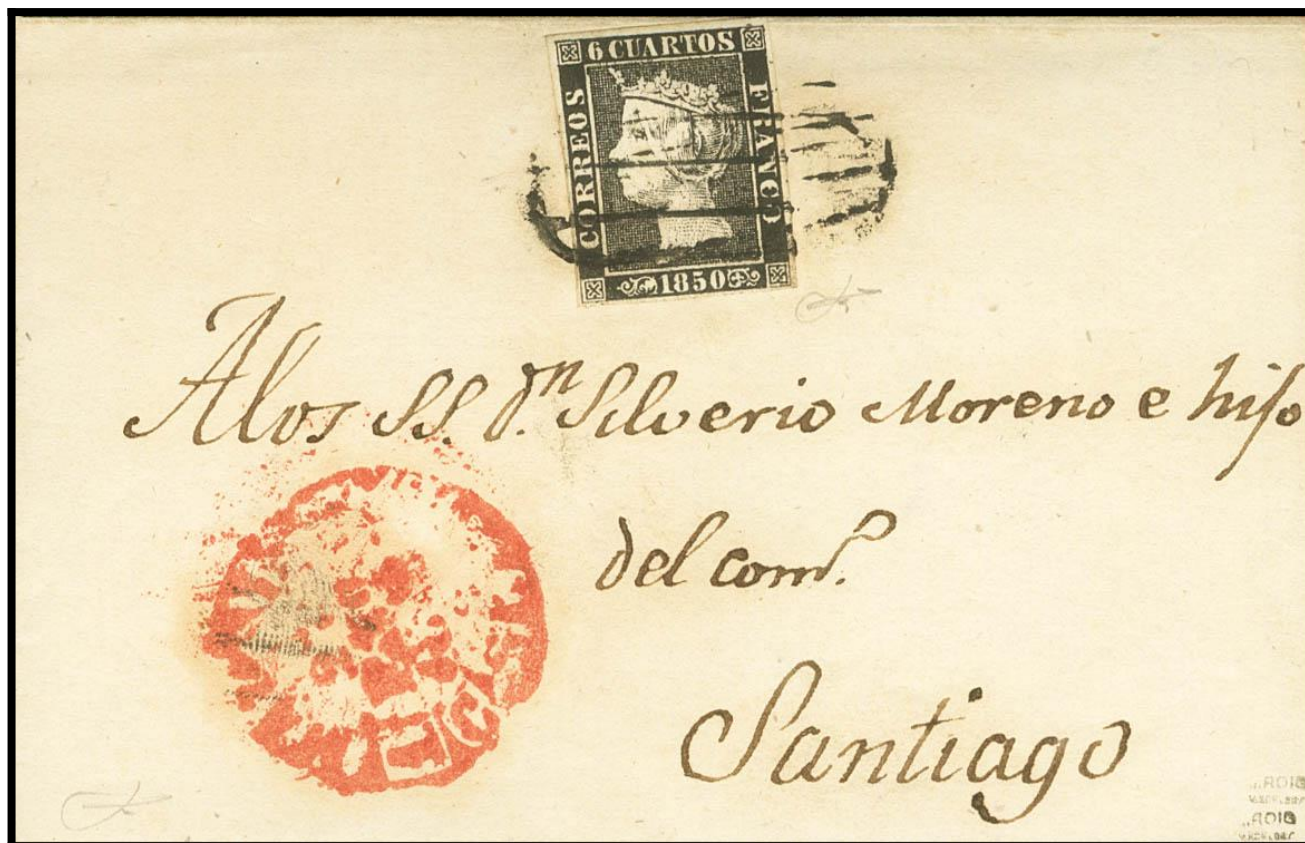 6 CUARTOS
CORREOS
FRANCO
1850
Alos SS. Dn. Silverio Moreno e hijo
del como.
Santiago
ROIG
ROIG